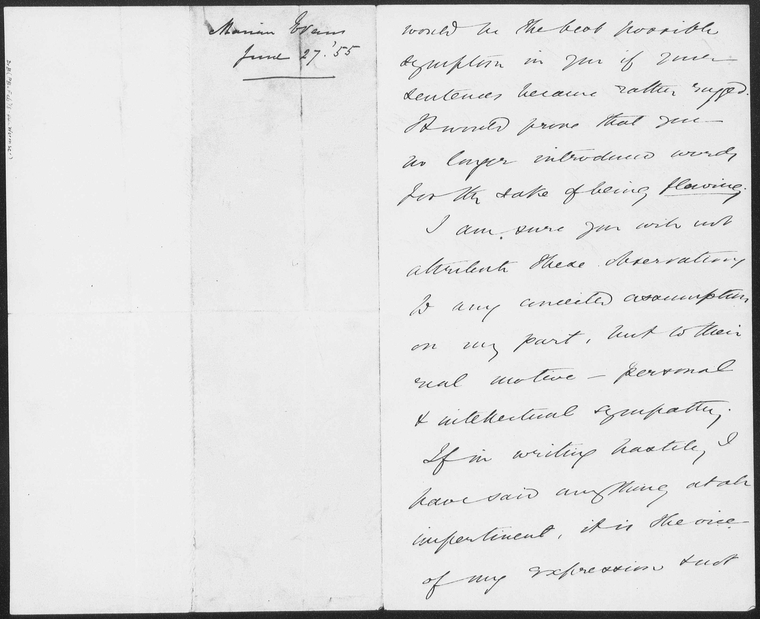 Marian Evans
June 27. '55
would be the best possible
symptom in you if your
sentences became rather rugged.
It would prove that you
no longer introduced words
for the sake of being flowing.
I am sure you will not
attribute these observations
to any conceited assumption
on my part, but to their
real motive – personal
& intellectual sympathy.
If in writing hastily I
have said anything at all
impertinent, it is the vice
of my expression & not